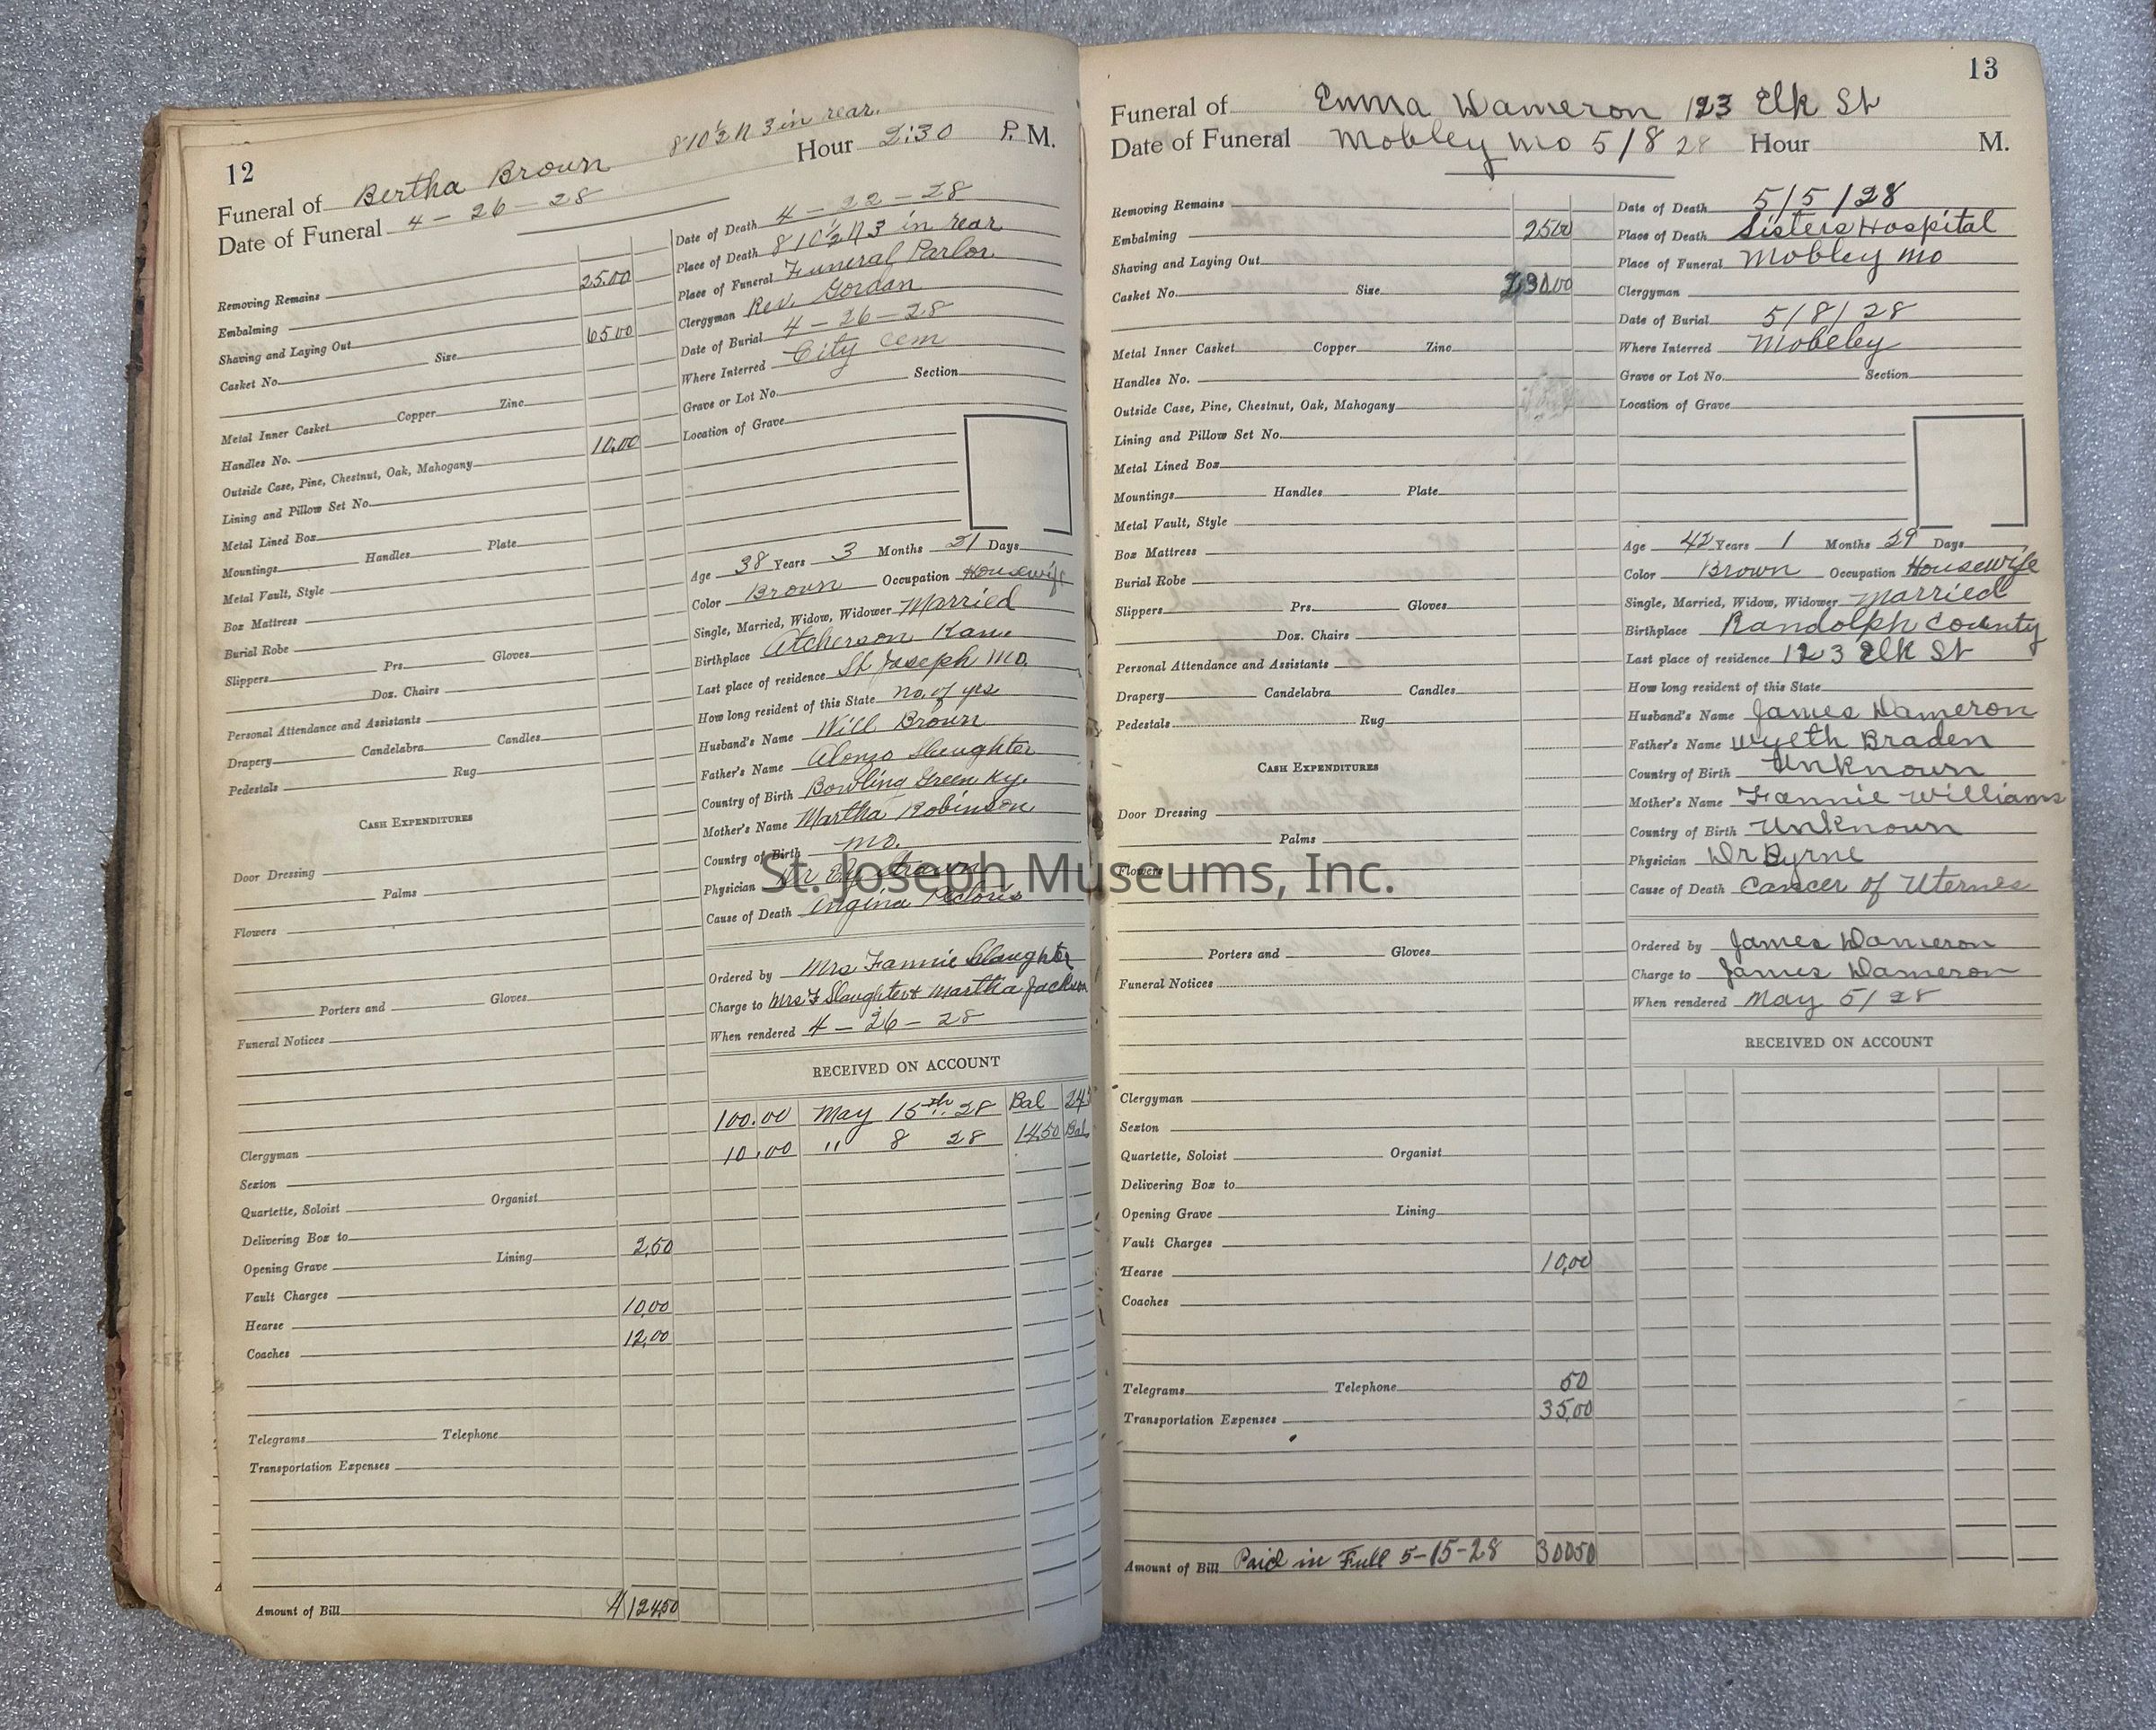 12
810½ N 3 in rear.
Funeral of Bertha Brown
Date of Funeral 4-26-28 Hour 2:30 P. M.
Removing Remains
Embalming 25.00
Shaving and Laying Out
Casket No. Size 65.00
Metal Inner Casket Copper Zinc
Handles No.
Outside Case, Pine, Chestnut, Oak, Mahogany 10.00
Lining and Pillow Set No.
Metal Lined Box
Mountings Handles Plate
Metal Vault, Style
Box Mattress
Burial Robe
Slippers Prs. Gloves
Doz. Chairs
Personal Attendance and Assistants
Drapery Candelabra Candles
Pedestals Rug
CASH EXPENDITURES
Door Dressing
Palms
Flowers
Porters and Gloves
Funeral Notices
Clergyman
Sexton
Quartette, Soloist Organist
Delivering Box to
Opening Grave Lining 2.50
Vault Charges
Hearse 10.00
Coaches 12.00
Telegrams Telephone
Transportation Expenses
Amount of Bill 124.50
Date of Death 4-22-28
Place of Death 810½ N 3 in rear
Place of Funeral Funeral Parlor
Clergyman Rev. Gordan
Date of Burial 4-26-28
Where Interred City Cem
Grave or Lot No. Section
Location of Grave
Age 38 Years 3 Months 21 Days
Color Brown Occupation Housewife
Single, Married, Widow, Widower Married
Birthplace Atcherson Kan.
Last place of residence St Joseph Mo.
How long resident of this State no. of yrs
Husband's Name Will Brown
Father's Name Alonzo Slaughter
Country of Birth Bowling Green Ky.
Mother's Name Martha Robinson
Country of Birth Mo.
Physician Dr
Cause of Death Angina Pectoris
Ordered by Mrs Fannie Slaughter
Charge to Mrs F Slaughter & Martha Jackson
When rendered 4-26-28
RECEIVED ON ACCOUNT
100.00 May 15th. 28 Bal
10.00 " 8 28 14.50 Bal
13
Funeral of Emma Dameron 123 Elk St
Date of Funeral Mobley Mo 5/8 28 Hour M.
Removing Remains
Embalming 25.00
Shaving and Laying Out
Casket No. Size 230.00
Metal Inner Casket Copper Zinc
Handles No.
Outside Case, Pine, Chestnut, Oak, Mahogany
Lining and Pillow Set No.
Metal Lined Box
Mountings Handles Plate
Metal Vault, Style
Box Mattress
Burial Robe
Slippers Prs. Gloves
Doz. Chairs
Personal Attendance and Assistants
Drapery Candelabra Candles
Pedestals Rug
CASH EXPENDITURES
Door Dressing
Palms
Flowers
Porters and Gloves
Funeral Notices
Clergyman
Sexton
Quartette, Soloist Organist
Delivering Box to
Opening Grave Lining
Vault Charges
Hearse 10.00
Coaches
Telegrams Telephone 50
Transportation Expenses 35.00
Amount of Bill Paid in Full 5-15-28 300 50
Date of Death 5/5/28
Place of Death Sisters Hospital
Place of Funeral Mobley Mo
Clergyman
Date of Burial 5/8/28
Where Interred Mobeley
Grave or Lot No. Section
Location of Grave
Age 42 Years 1 Months 29 Days
Color Brown Occupation Housewife
Single, Married, Widow, Widower Married
Birthplace Randolph County
Last place of residence 123 Elk St
How long resident of this State
Husband's Name James Dameron
Father's Name Wyeth Braden
Country of Birth Unknown
Mother's Name Fannie Williams
Country of Birth Unknown
Physician Dr Byrne
Cause of Death Cancer of Uternes
Ordered by James Dameron
Charge to James Dameron
When rendered May 5/28
RECEIVED ON ACCOUNT
St. Joseph Museums, Inc.